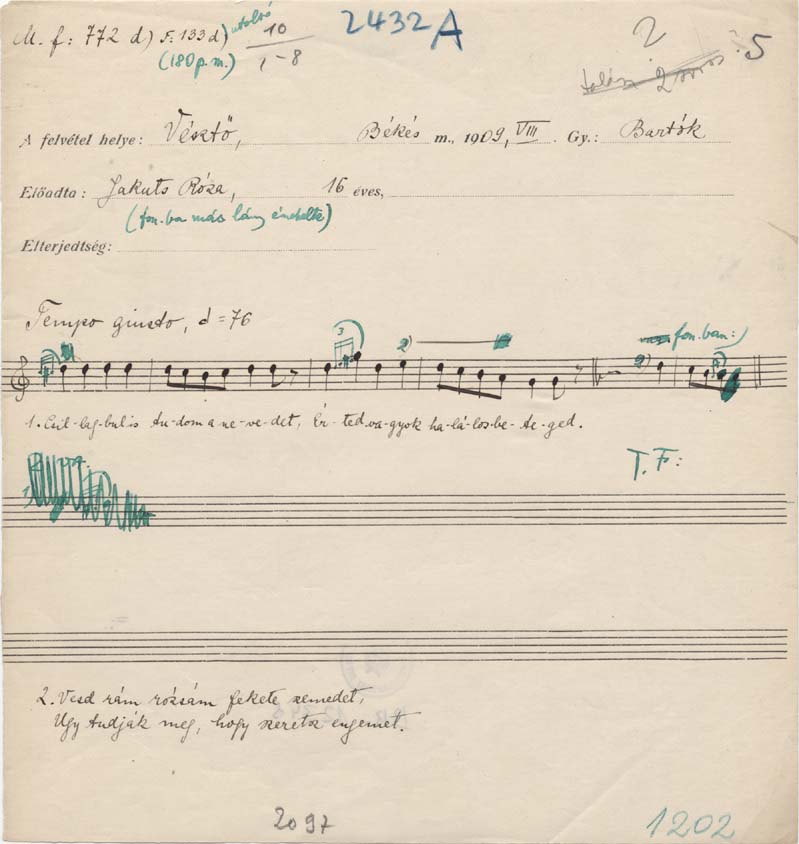 M. f: 772 d) F. 133 d) utolsó 10 2432 A 2
(180 p.m.) 1-8 5
A felvétel helye: Vésztő, Békés m., 1909, VIII. Gy.: Bartók
Előadta: Jakuts Róza, 16 éves,
(fon.ba más lány énekelte)
Elterjedtség:
Tempo giusto, = 76
3 2) fon.ban:) 2)
1. Csil-lag-bul is tu-dom a ne-ve-det, Ér-ted va-gyok ha-lá-los be-te-ged.
T. F:
2. Vesd rám rózsám fekete szemedet,
Ugy tudják meg, hogy szeretsz engemet.
2097 1202